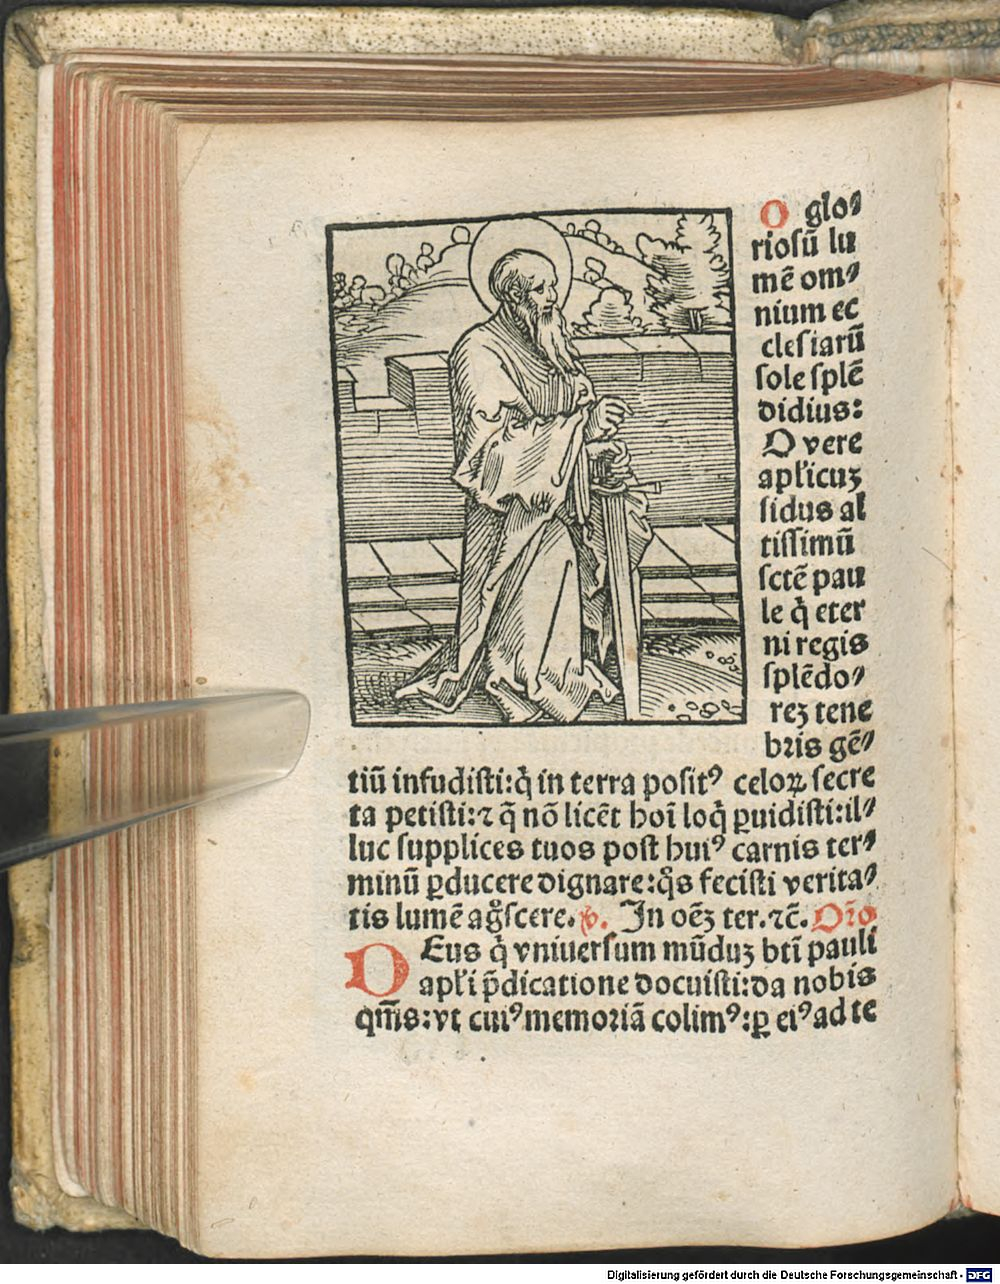 O glo⸗
riosū lu
mē om⸗
nium ec
clesiarū
sole splē
didius:
O vere
apl'icuꝫ
sidus al
tissimū
sctē pau
le q̇ eter
ni regis
splēdo⸗
reꝫ tene
bris gē⸗
tiū infudisti:q̇ in terra posit⁹ celoꝝ secre
ta petisti:⁊ q̄ nō licēt hoī loq̇ ꝑuidisti:il⸗
luc supplices tuos post hui⁹ carnis ter⸗
minū ꝑducere dignare:q̊s fecisti verita⸗
tis lumē ag̊scere. ℣. In oēꝫ ter.⁊c̄. Or̄o
DEus q̇ vniuersum mūduꝫ btī pauli
apl'i p̄dicatione docuisti:da nobis
qm̄s:vt cui⁹ memoriā colim⁹:ꝑ ei⁹ ad te
Digitalisierung gefördert durch die Deutsche Forschungsgemeinschaft - DFG